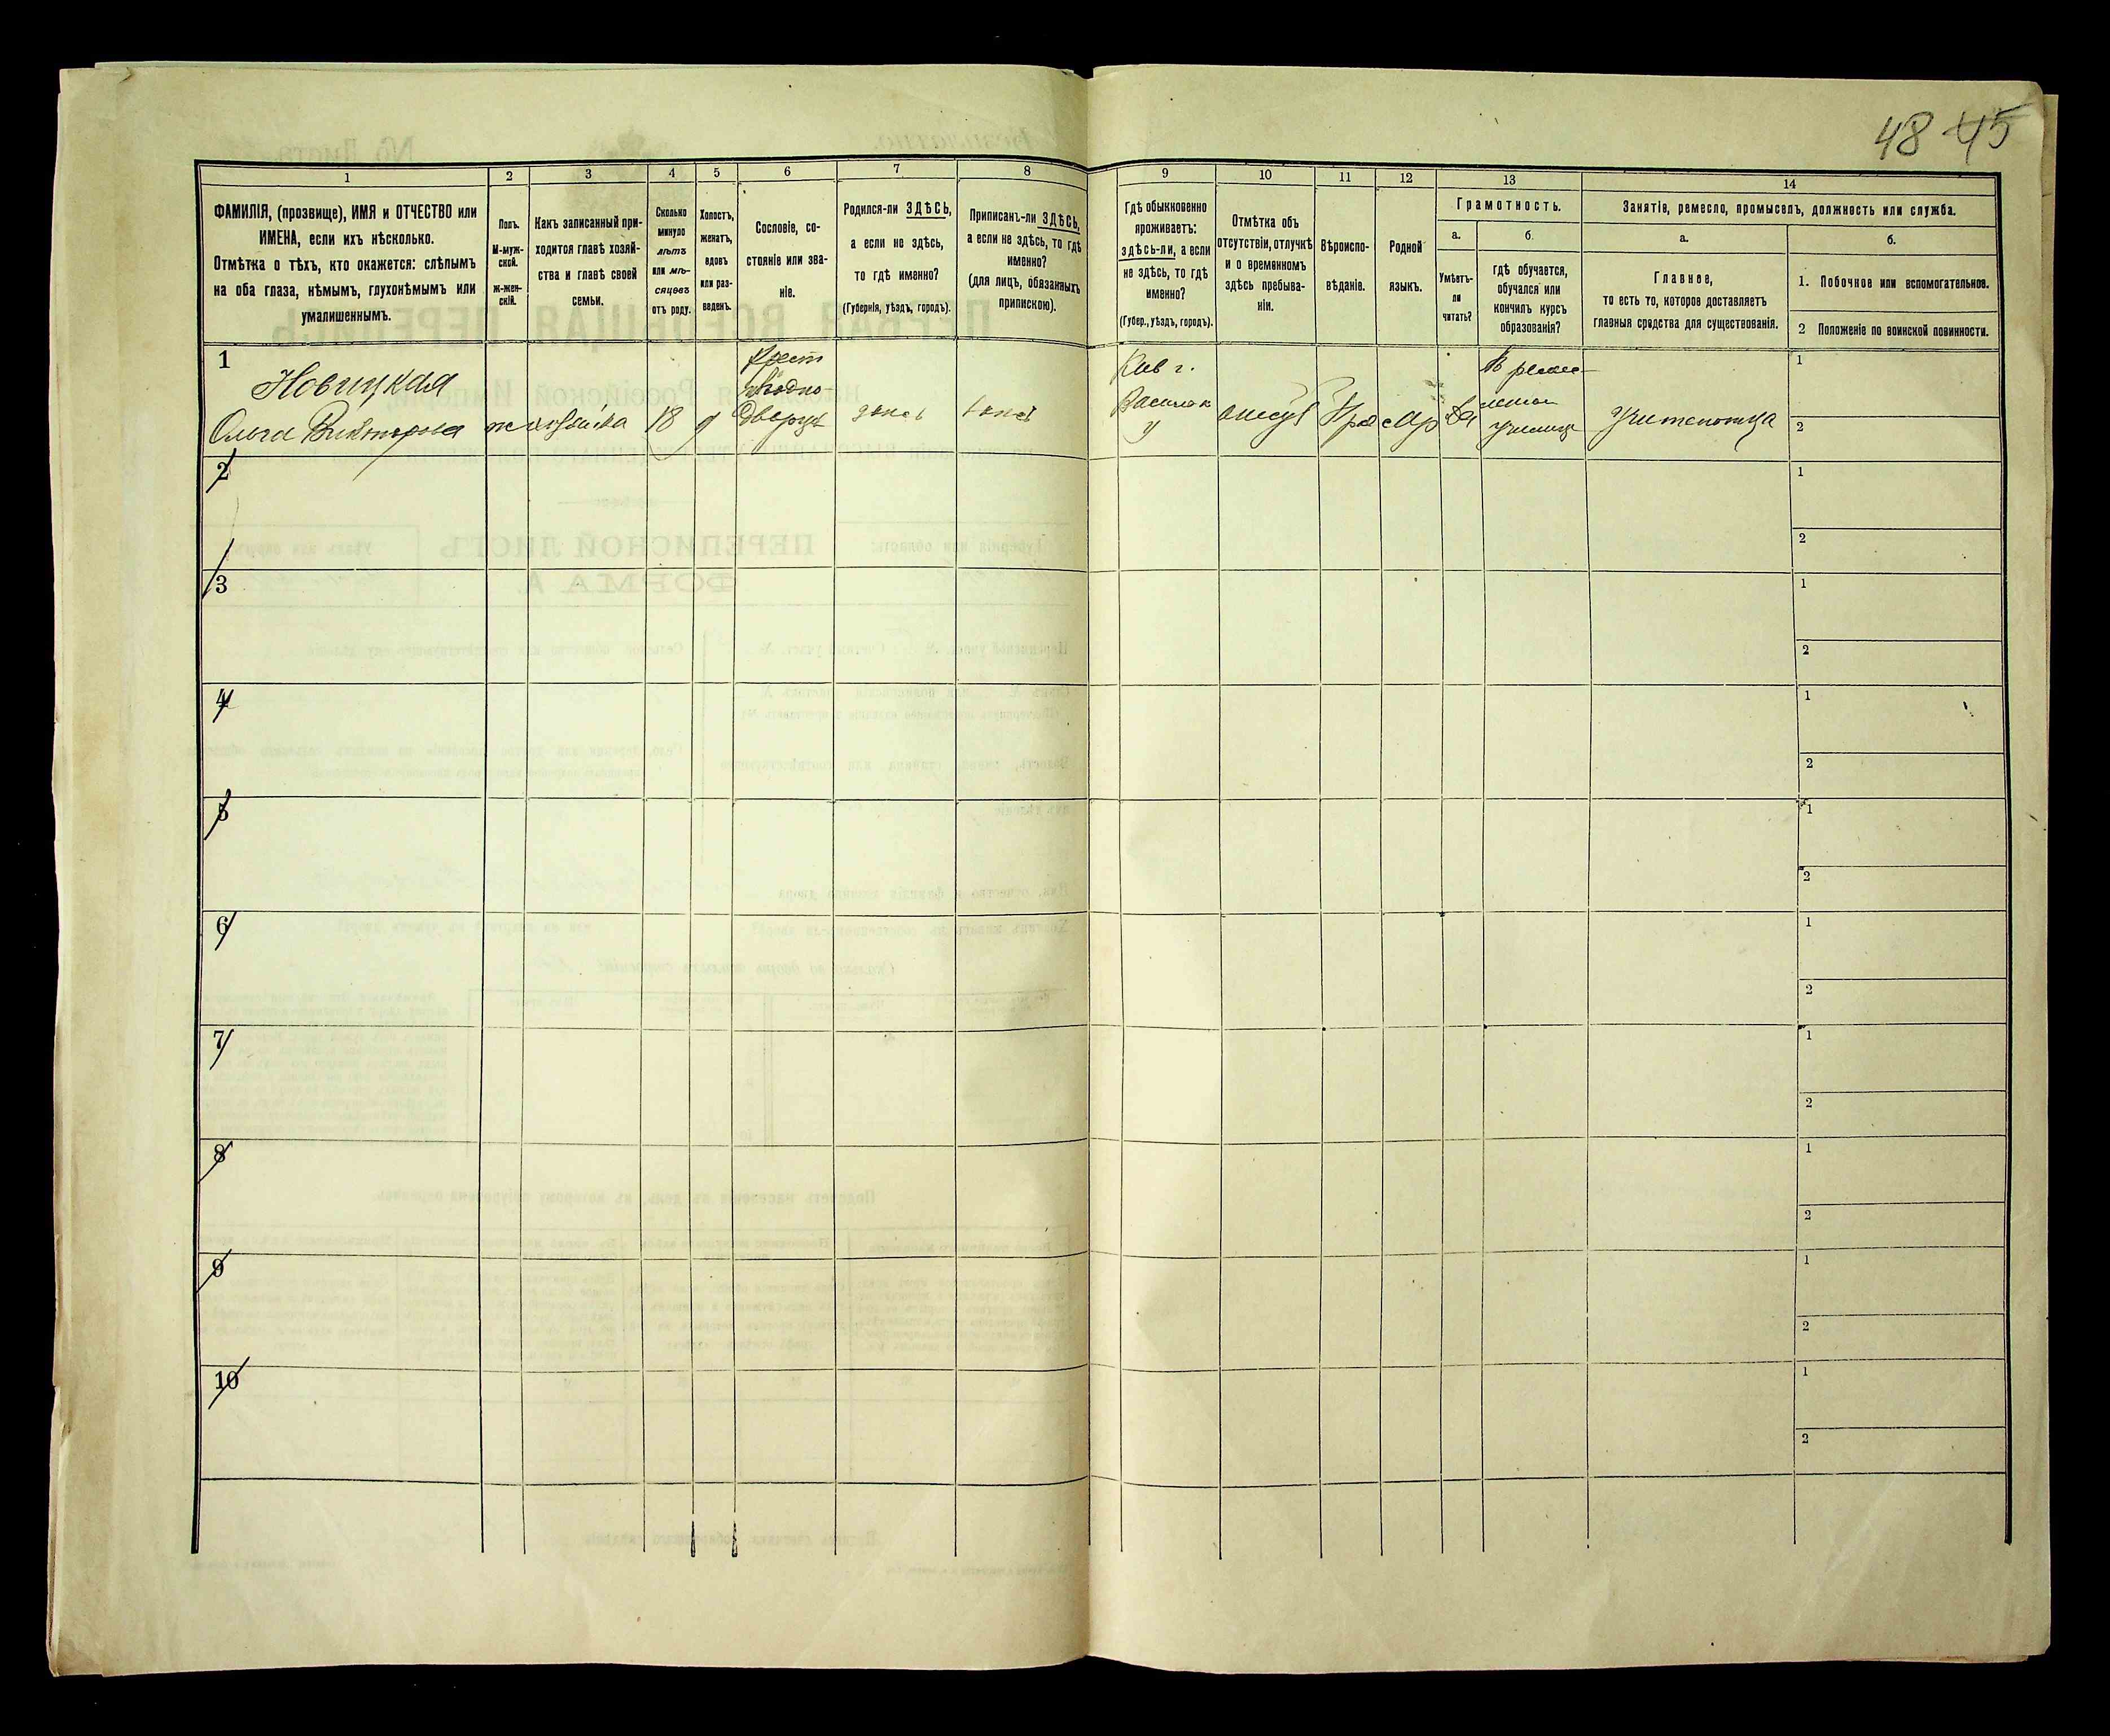 48 45
1
2
3
4
5
6
7
8
9
10
11
12
13
14
ФАМИЛІЯ, (прозвище), ИМЯ и ОТЧЕСТВО или
ИМЕНА, если ихъ нѣсколько.
Отмѣтка о тѣхъ, кто окажется: слѣпымъ
на оба глаза, нѣмымъ, глухонѣмымъ или
умалишеннымъ.
Полъ.
М-муж-
ской.
ж-жен-
скій.
Какъ записанный при-
ходится главѣ хозяй-
ства и главѣ своей
семьи.
Сколько
минуло
лѣтъ
или мѣ-
сяцевъ
отъ роду.
Холостъ,
женатъ,
вдовъ
или раз-
веденъ.
Сословіе, со-
стояніе или зва-
ніе.
Родился-ли ЗДѢСЬ,
а если не здѣсь,
то гдѣ именно?
(Губернія, уѣздъ, городъ).
Приписанъ-ли ЗДѢСЬ,
а если не здѣсь, то гдѣ
именно?
(для лицъ, обязанныхъ
припискою).
Гдѣ обыкновенно
проживаетъ:
здѣсь-ли, а если
не здѣсь, то гдѣ
именно?
(Губер., уѣздъ, городъ).
Отмѣтка объ
отсутствіи, отлучкѣ
и о временномъ
здѣсь пребыва-
ніи.
Вѣроиспо-
вѣданіе.
Родной
языкъ.
Грамотность.
а.
Умѣетъ-
ли
читать?
б.
гдѣ обучается,
обучался или
кончилъ курсъ
образованія?
Занятіе, ремесло, промыселъ, должность или служба.
а.
Главное,
то есть то, которое доставляетъ
главныя средства для существованія.
б.
1. Побочное или вспомогательное.
2 Положеніе по воинской повинности.
1
Новицкая
Ольга Викторова
ж
хозяйка
18
д
Дворян
здесь
Киев г.
Васильк
у
отсут
Пра
Да
училище
учительница
1
2
2
1
2
3
1
2
4
1
2
5
1
2
6
1
2
7
1
2
8
1
2
9
1
2
10
1
2